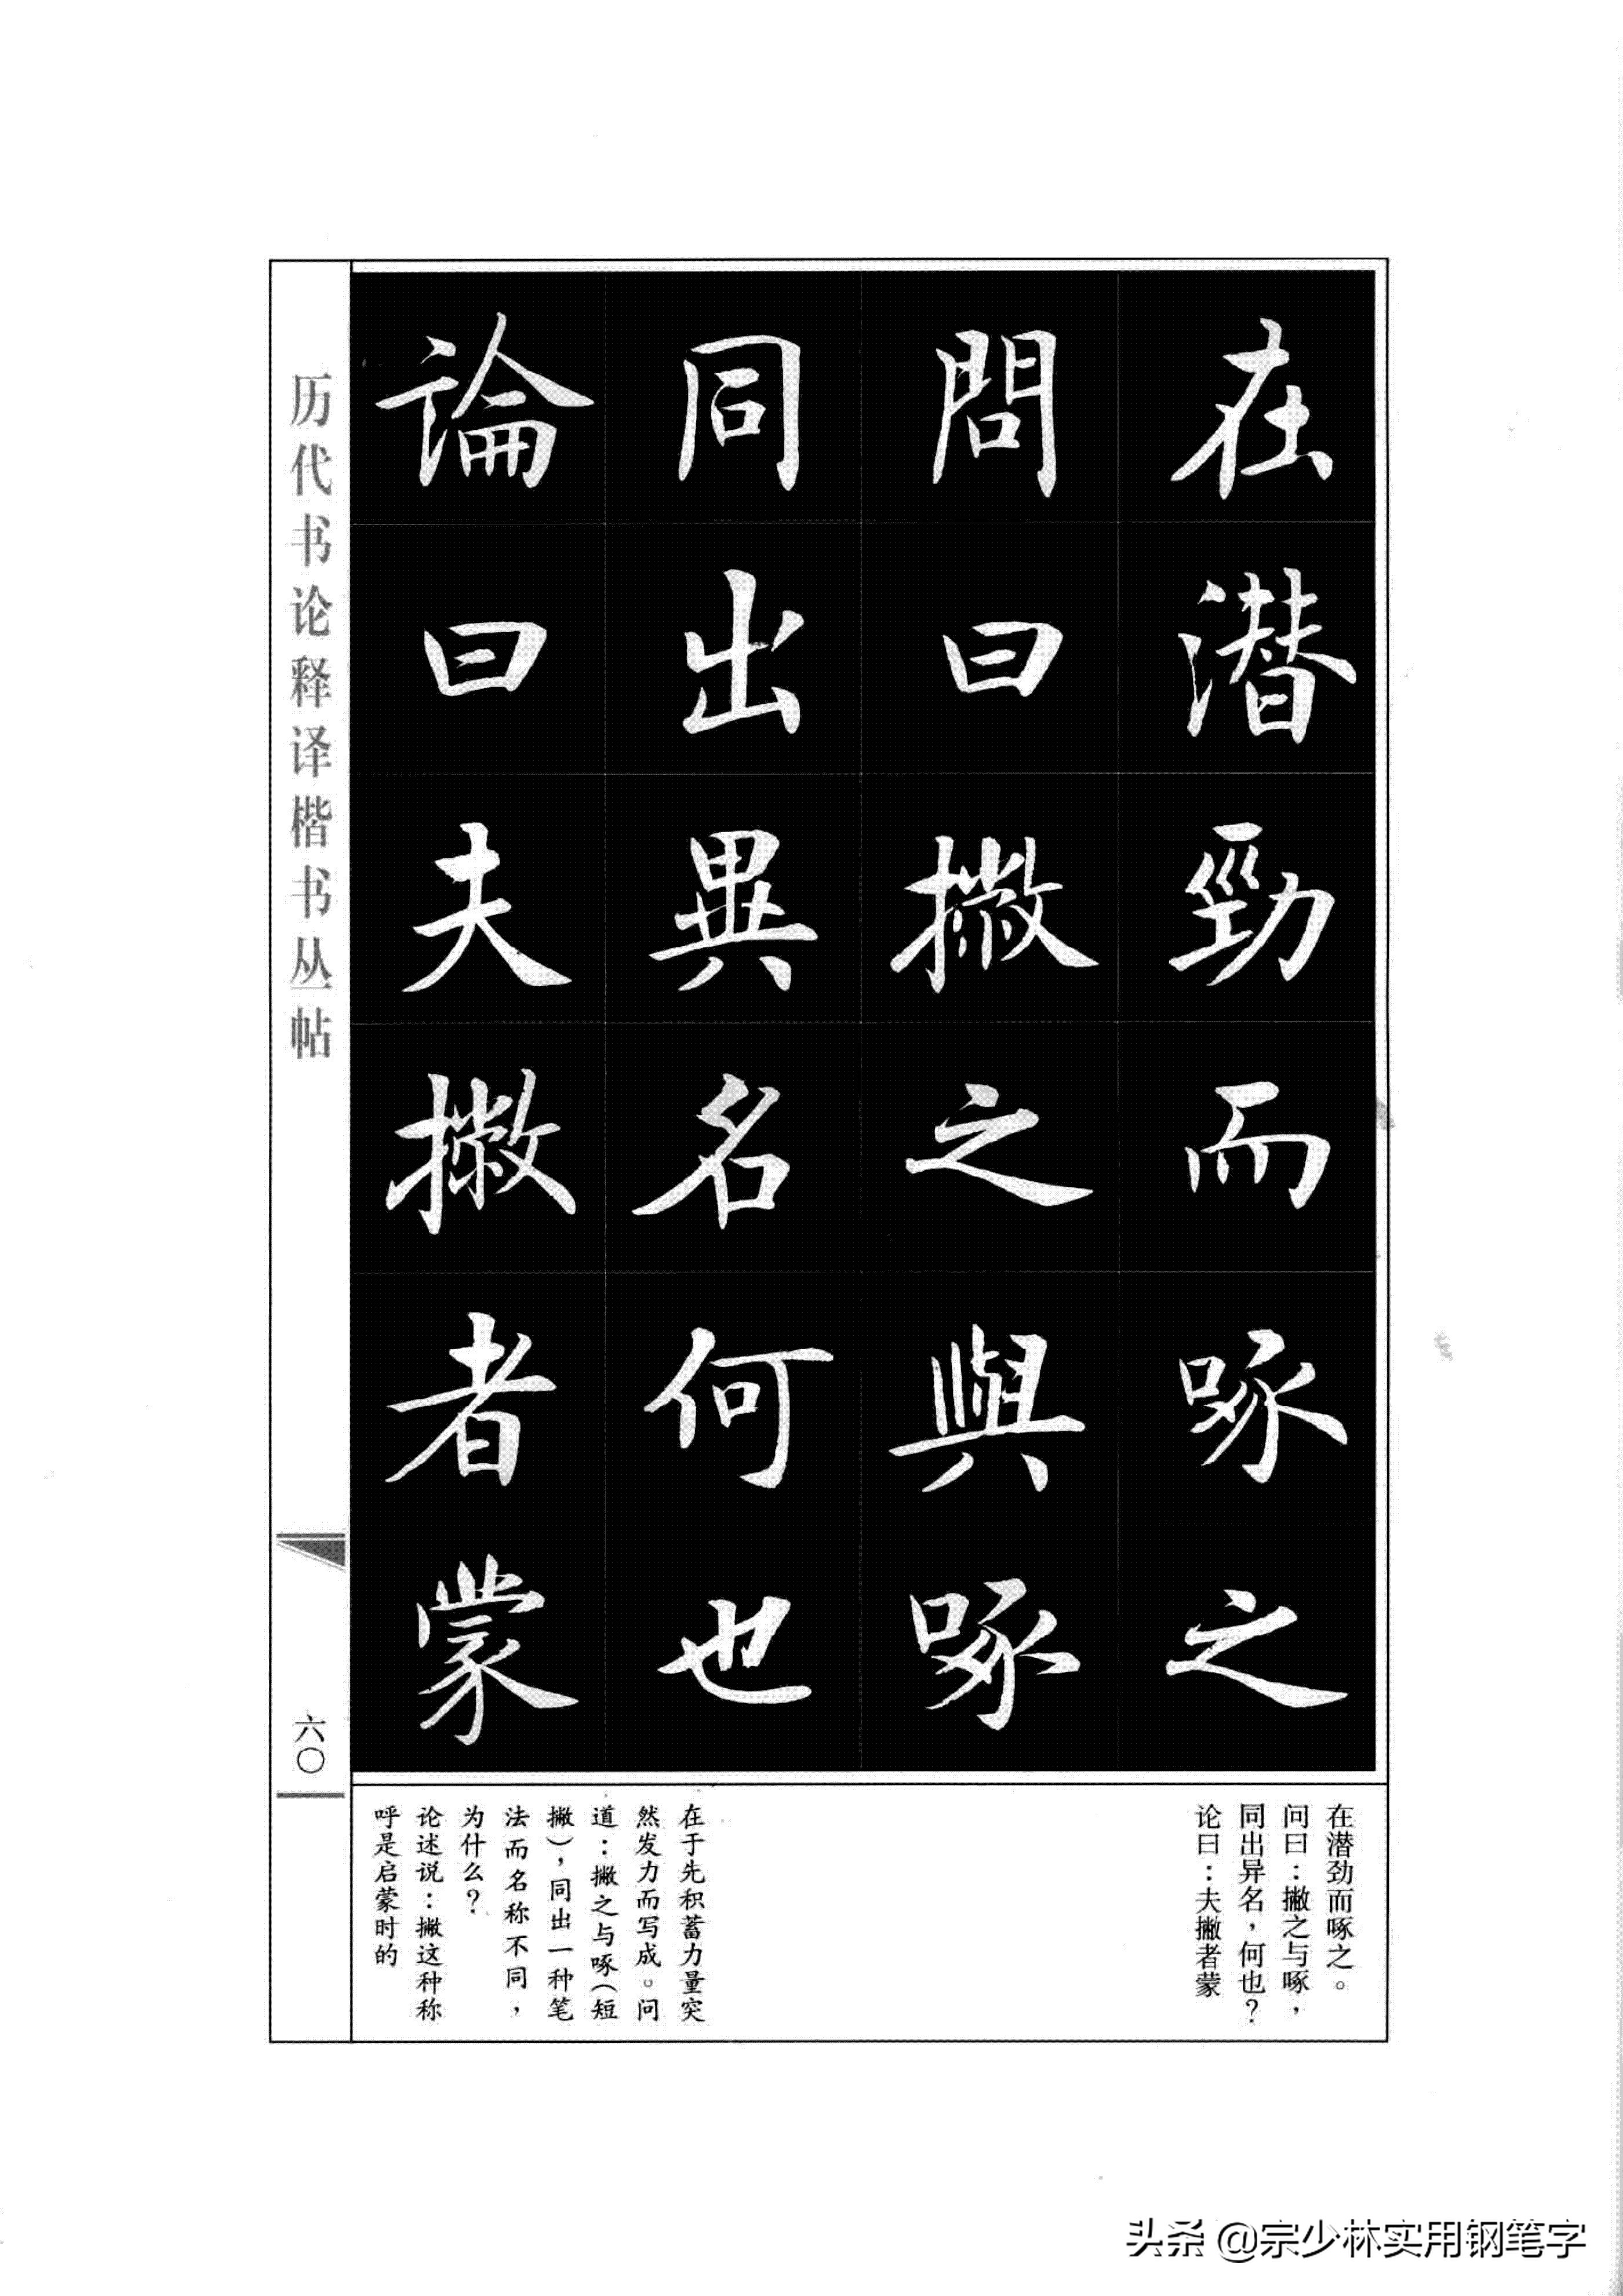 在潛勁而啄之
問曰撇之與啄
同出異名何也
論曰夫撇者蒙
历代书论释译楷书丛帖
六〇
在潜劲而啄之。
问曰：撇之与啄，
同出异名，何也？
论曰：夫撇者蒙
在于先积蓄力量突
然发力而写成。问
道：撇之与啄（短
撇），同出一种笔
法而名称不同，
为什么？
论述说：撇这种称
呼是启蒙时的
头条 @宗少林实用钢笔字